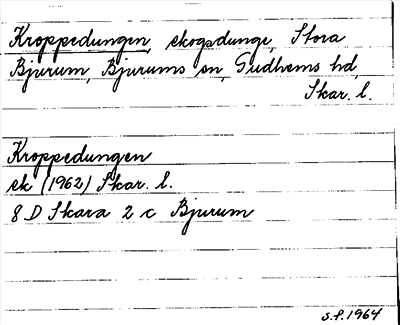 Kroppedungen, skogsdunge, Stora
Bjurum, Bjurums sn, Gudhems hd,
Skar. l.
Kroppedungen
ek (1962) Skar. l.
8 D Skara 2 c Bjurum
S.F. 1964